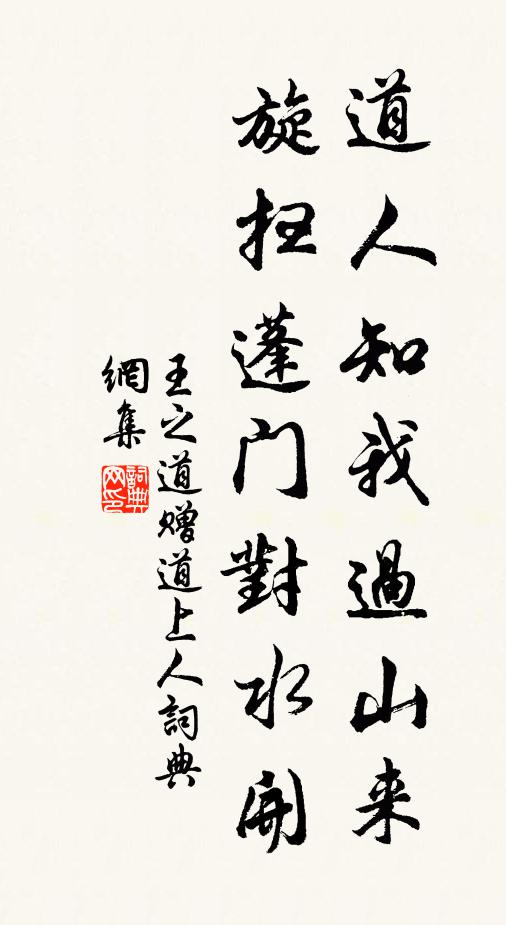 道人知我過山来
旋蓬門對水開
王之道贈道上人詞典
網集
詞典
网印